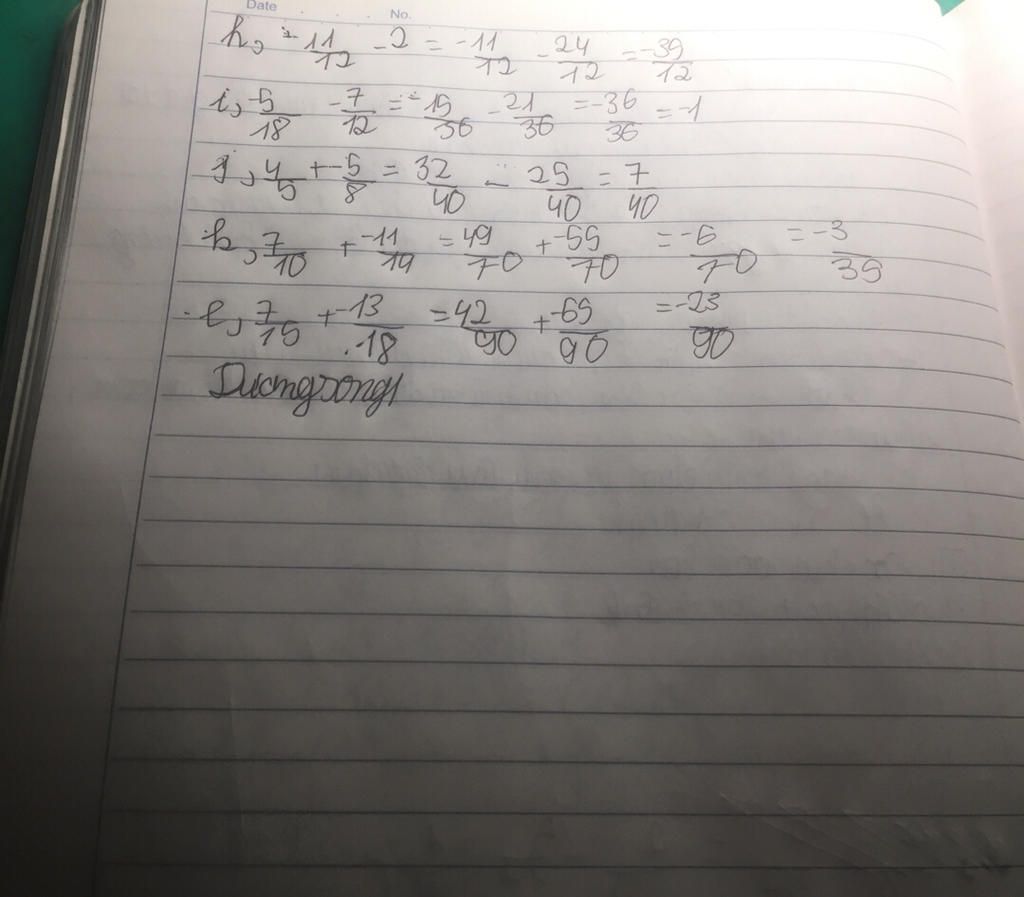 Date . . . . No.
h, -11/12 - 2 = -11/12 - 24/12 = -39/12
i, -5/18 - 7/12 = -15/36 - 21/36 = -36/36 = -1
j, 4/5 + -5/8 = 32/40 - 25/40 = 7/40
k, 7/10 + -11/14 = 49/70 + -55/70 = -6/70 = -3/35
l, 7/15 + -13/18 = 42/90 + -65/90 = -23/90